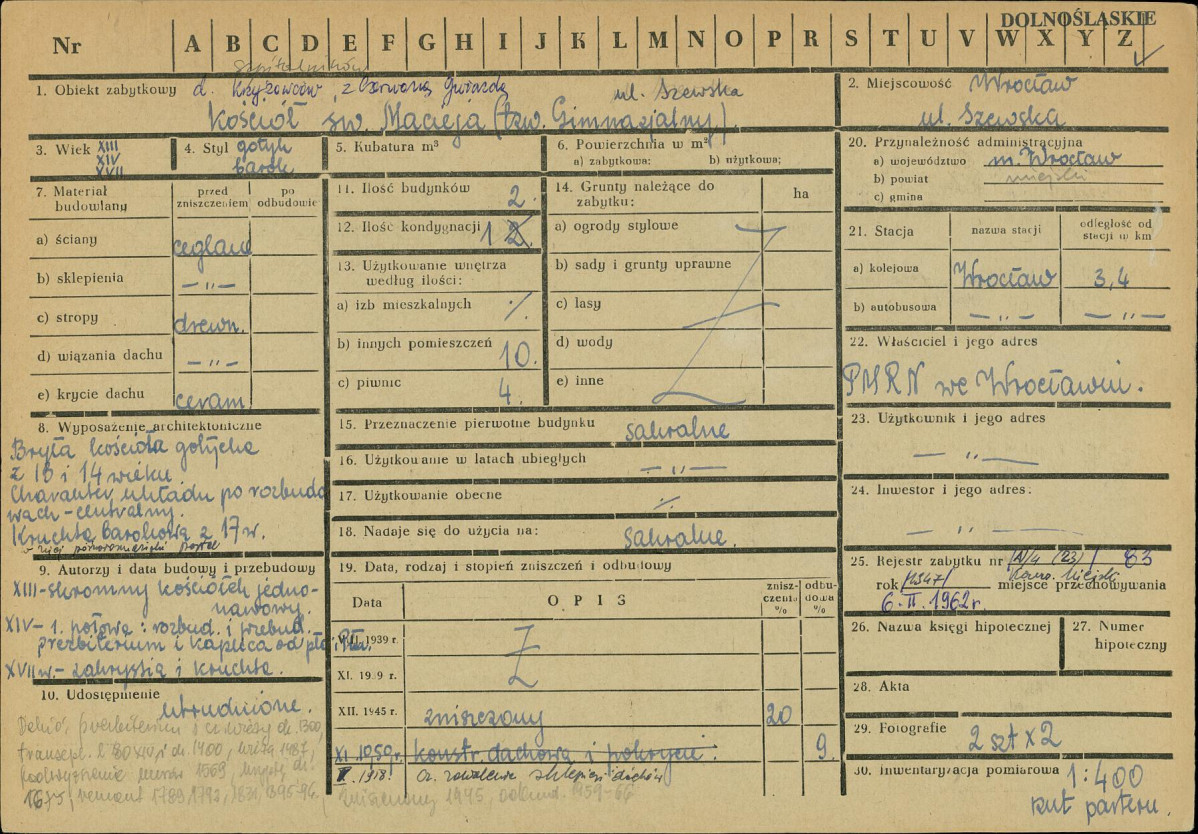 DOLNOŚLĄSKIE
Nr A B C D E F G H I J K L M N O P R S T U V W X Y Z
szpitalników
1. Obiekt zabytkowy d. Krzyżowców z Czerwoną Gwiazdą ul. Szewska
Kościół św. Macieja (tzw. Gimnazjalny).
2. Miejscowość Wrocław
ul. Szewska
3. Wiek XIII
XIV
XVII
4. Styl gotyk
barok
5. Kubatura m³
6. Powierzchnia w m²
a) zabytkowa: b) użytkowa;
20. Przynależność administracyjna
a) województwo m. Wrocław
b) powiat miejski
c) gmina
7. Materiał budowlany
przed zniszczeniem
po odbudowie
a) ściany ceglane
b) sklepienia – „ –
c) stropy drewn.
d) wiązania dachu – „ –
e) krycie dachu ceram.
11. Ilość budynków 2.
12. Ilość kondygnacji 1 2.
13. Użytkowanie wnętrza
według ilości:
a) izb mieszkalnych ./.
b) innych pomieszczeń 10.
c) piwnic 4.
14. Grunty należące do
zabytku: ha
a) ogrody stylowe
b) sady i grunty uprawne
c) lasy
d) wody
e) inne
21. Stacja
nazwa stacji
odległość od
stacji w km
a) kolejowa Wrocław 3,4
b) autobusowa – „ – – „ –
22. Właściciel i jego adres
PMRN we Wrocławiu.
8. Wyposażenie architektoniczne
Bryła kościoła gotycka
z 13 i 14 wieku.
Charakter układu po rozbudo
wach – centralny.
Kruchta barokowa z 17 w.
w niej późnoromański portal
15. Przeznaczenie pierwotne budynku sakralne
16. Użytkowanie w latach ubiegłych – „ –
17. Użytkowanie obecne ./.
18. Nadaje się do użycia na: sakralne.
23. Użytkownik i jego adres
– „ –
24. Inwestor i jego adres:
– „ –
9. Autorzy i data budowy i przebudowy
XIII – skromny kościółek jedno-
nawowy.
XIV – 1. połowa: rozbud. i przebud.
prezbiterium i kaplica od płd.
XVII w. – zakrystia i kruchta.
10. Udostępnienie
utrudnione.
19. Data, rodzaj i stopień zniszczeń i odbudowy
Data OPIS zniszczenia % odbudowa %
VIII. 1939 r.
XI. 1939 r.
XII. 1945 r. zniszczony 20
XI. 1959 r. konstr. dachowa i pokrycie. 9.
zniszczony 1945, odbud. 1959-66
25. Rejestr zabytku nr (A/4 (23)) 83
rok (1947) miejsce przechowywania
Kons. Miejski
6. II. 1962 r.
26. Nazwa księgi hipotecznej
27. Numer
hipoteczny
28. Akta
29. Fotografie 2 szt x 2
30. Inwentaryzacja pomiarowa 1:400
rzut parteru.